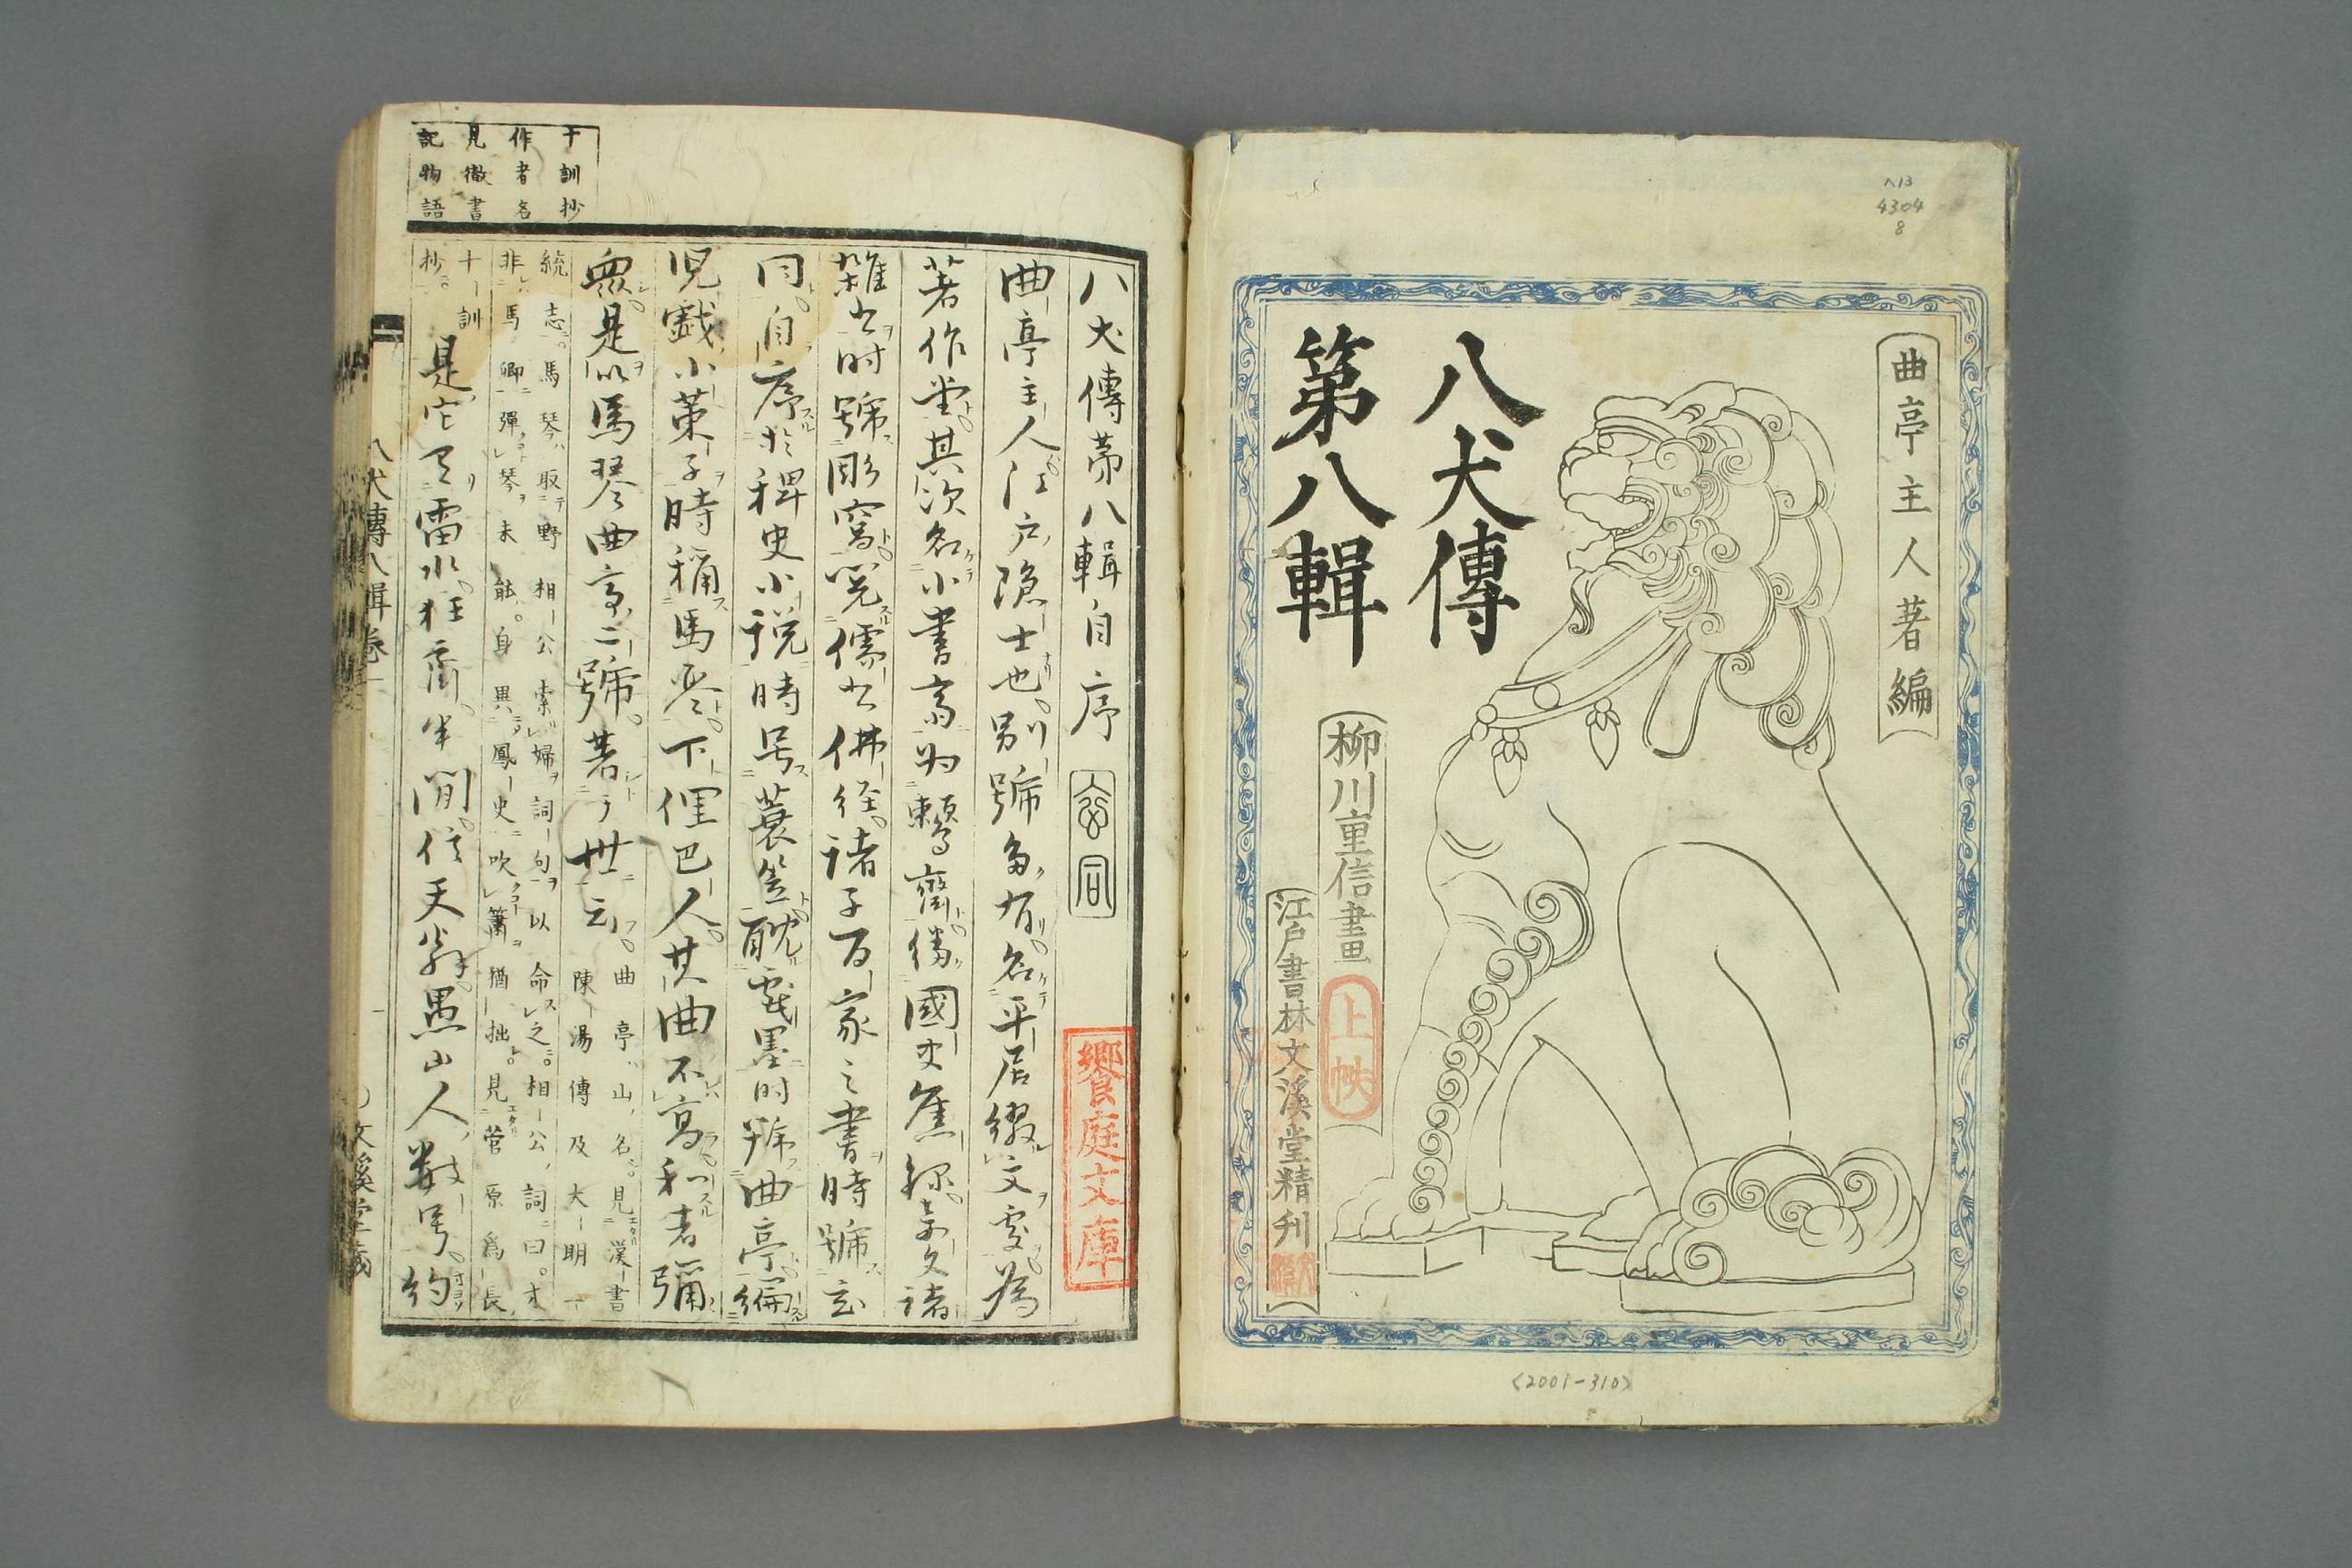 ヘ13
4304
8
曲亭主人著編
八犬傳
第八輯
柳川重信畫
上帙
江戸書林文溪堂精刋
〈2001-310〉
八犬傳第八輯自序
饗庭文庫
曲亭主人江戸隱士也別號多有名平居綴文處為
著作堂其次名小書齋為齋傭國史舊録奇文諸
雜書时號彫窩閲儒書佛経諸子百家之書時號玄
同自序於稗史小説時号蓑笠耽戯墨时號曲亭編
児戯小策子時稱馬琴下俚巴人其曲不高和者彌
衆是以馬琴曲亭二號著于世云
曲亭山名見漢書
陳湯傳及大明一
統志馬琴取野相公索婦詞句以命之相公詞曰才
非馬卿彈琴未能身異鳳史吹簫猶拙見菅原為長
十訓
抄
是它有雷水狂齋半閒信天翁愚山人數号約
十訓抄
作者名
見徹書
記物語
八犬傳八輯卷一
文溪堂藏